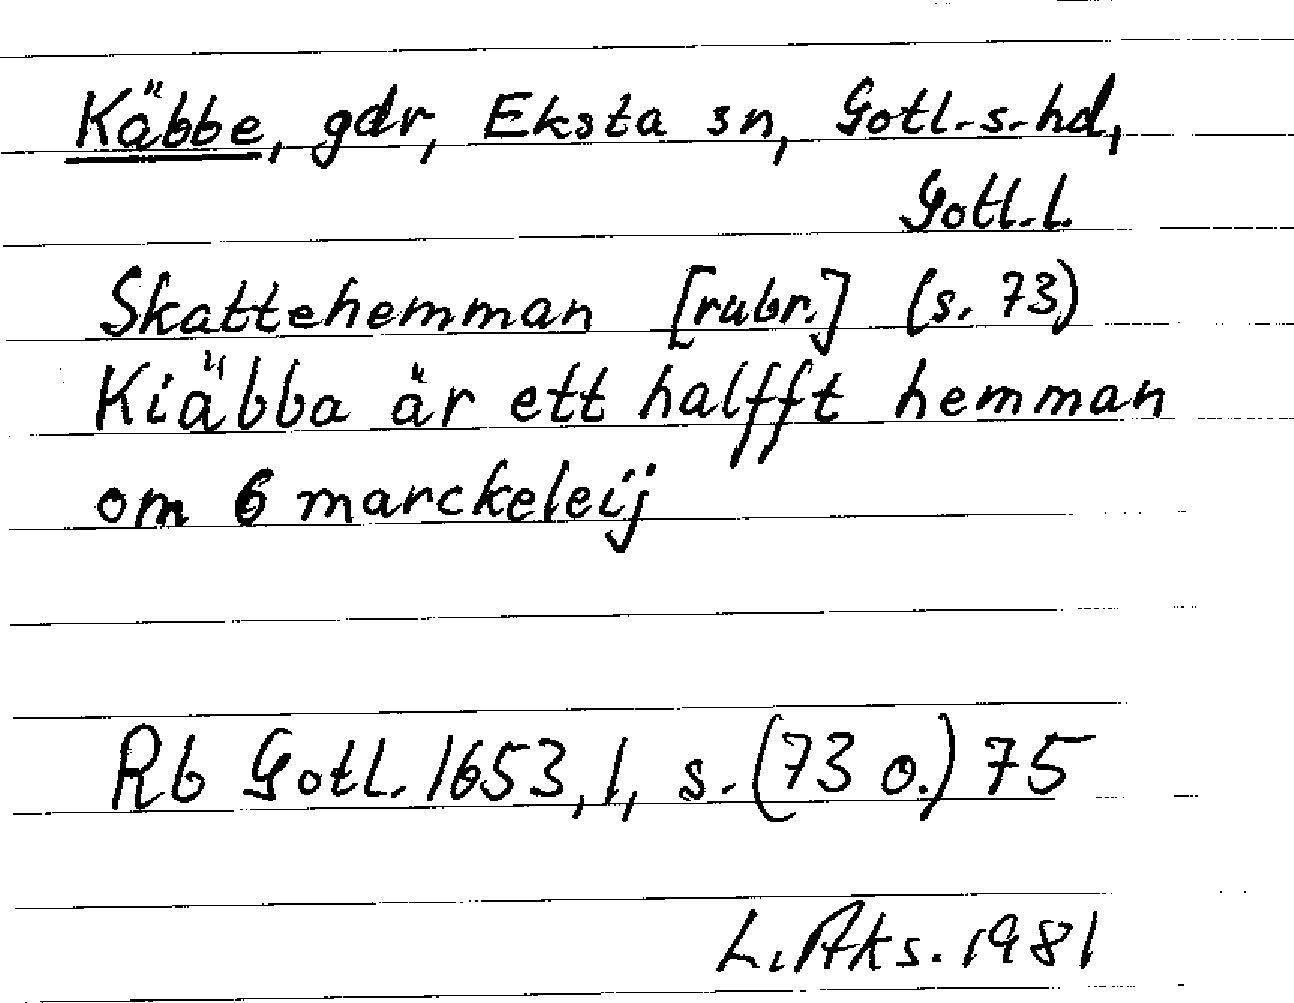 Käbbe, gdr, Eksta sn, Gotl.s.hd,
Gotl.l.
Skattehemman [rubr.] (s. 73)
Kiäbba är ett halfft hemman
om 6 marckeleij
Rb Gotl. 1653,1, s. (73 o.) 75
L. Aks. 1981